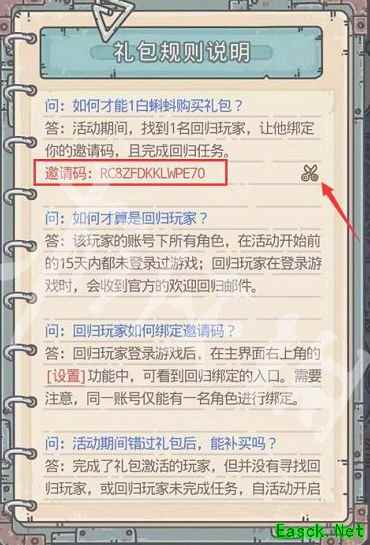 礼包规则说明
问：如何才能1白蝌蚪购买礼包？
答：活动期间，找到1名回归玩家，让他绑定
你的邀请码，且完成回归任务。
邀请码：RC8ZFDKKLWPE70
问：如何才算是回归玩家？
答：该玩家的账号下所有角色，在活动开始前
的15天内都未登录过游戏；回归玩家在登录游
戏时，会收到官方的欢迎回归邮件。
问：回归玩家如何绑定邀请码？
答：回归玩家登录游戏后，在主界面右上角的
[设置]功能中，可看到回归绑定的入口。需要
注意，同一账号仅能有一名角色进行绑定。
问：活动期间错过礼包后，能补买吗？
答：完成了礼包激活的玩家，但并没有寻找回
归玩家，或回归玩家未完成任务，自活动开启
Easck.Net